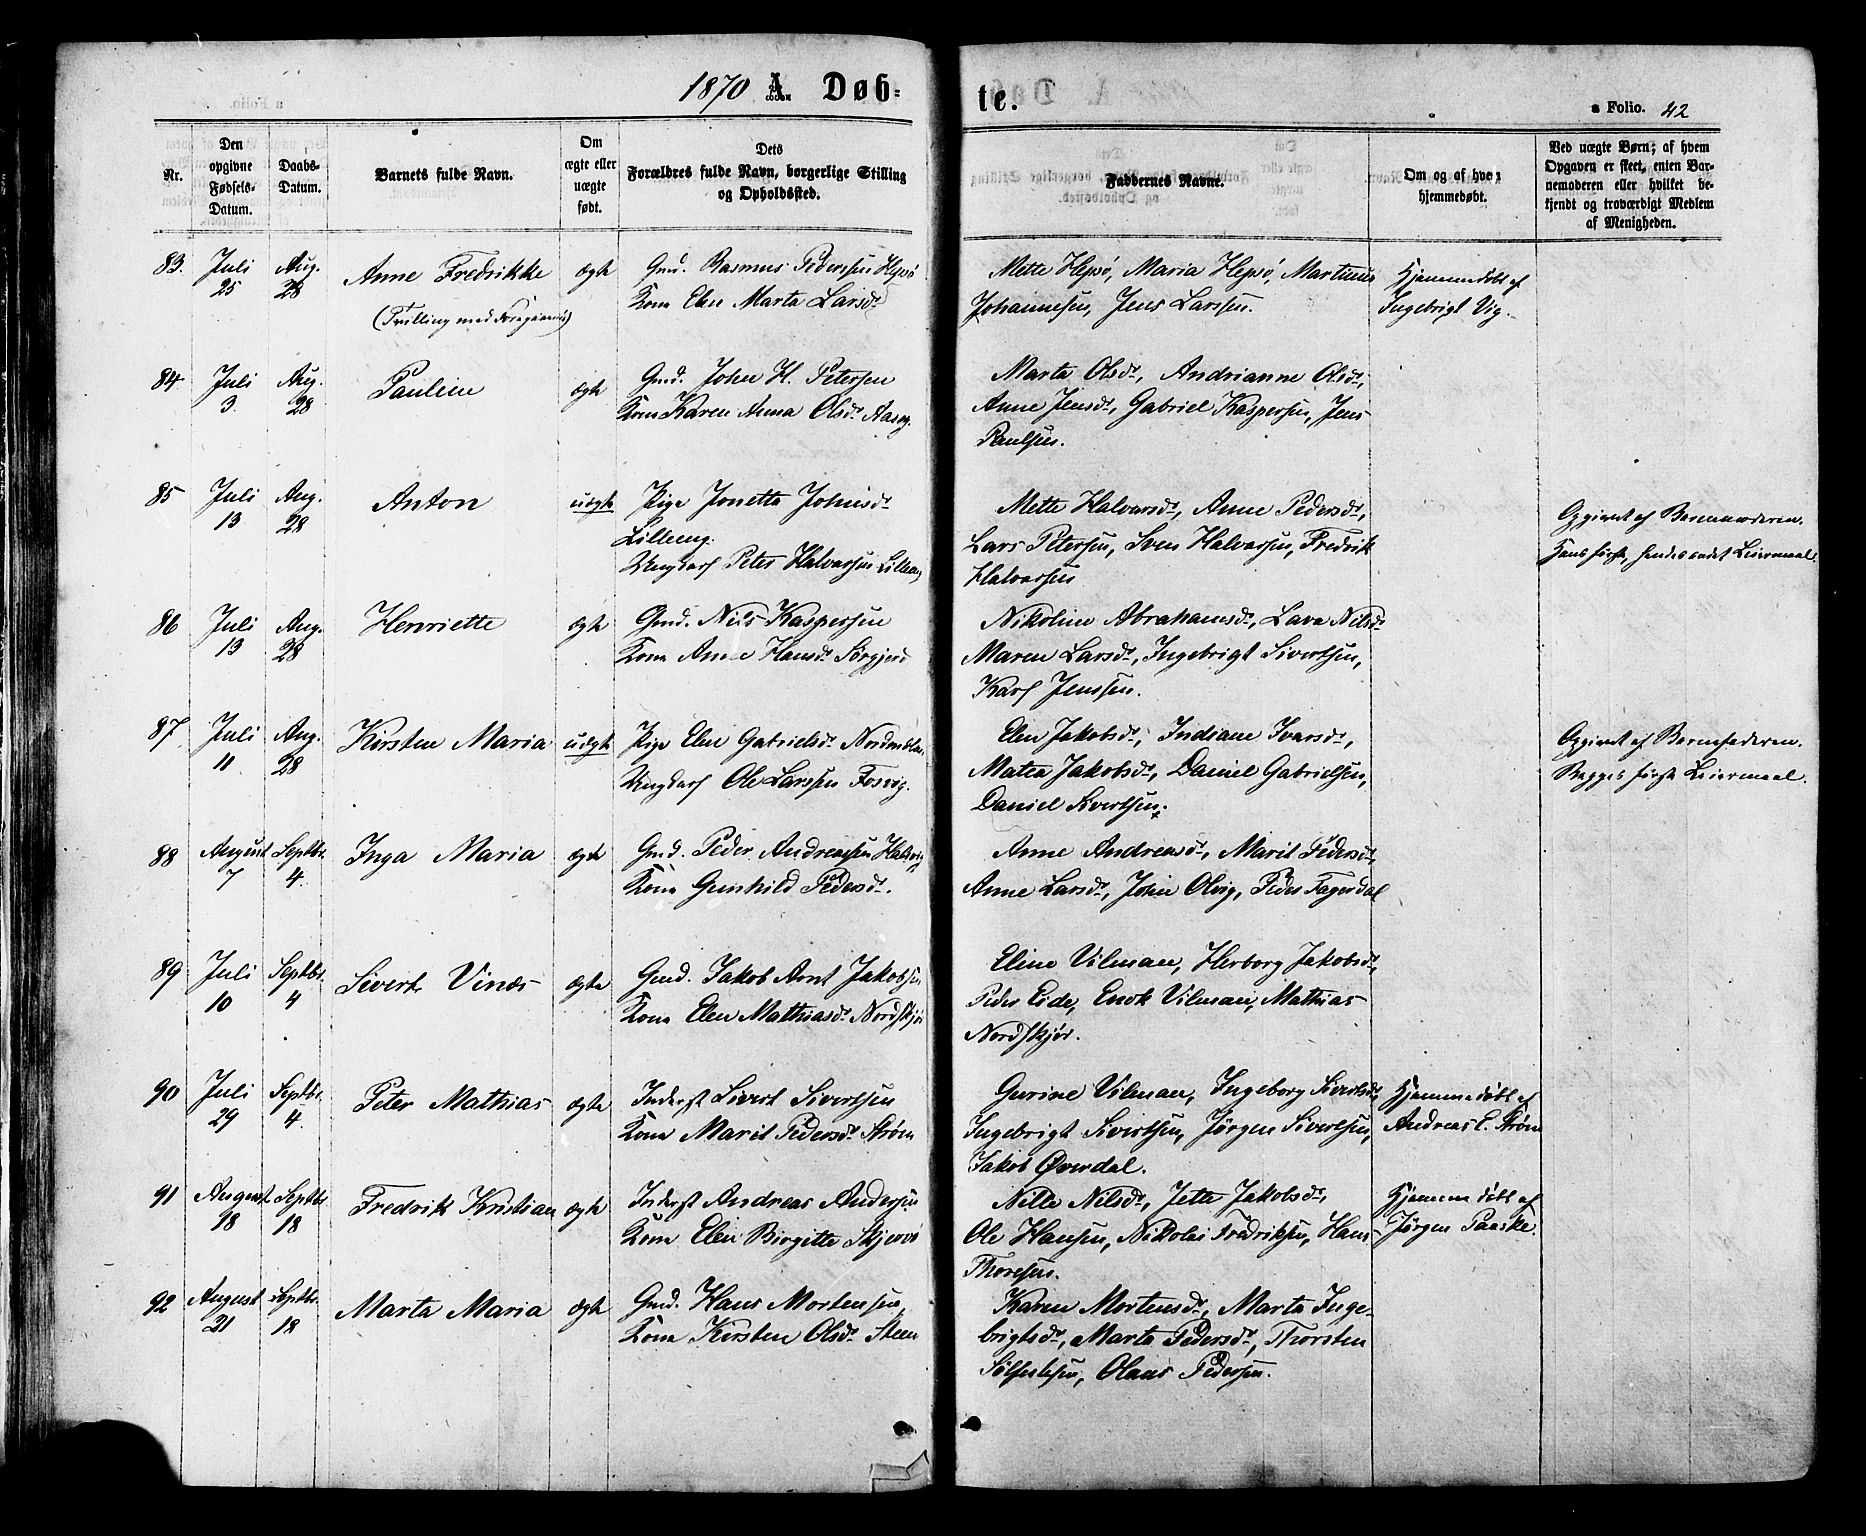 1870 A. Døb-
te.
a Folio. 42
Nr.
Den opgivne Fødsels-Datum.
Daabs-Datum.
Barnets fulde Navn.
Om ægte eller uægte født.
Dets Forældres fulde Navn, borgerlige Stilling og Opholdssted.
Faddernes Navne.
Om og af hvem hjemmedøbt.
Ved uægte Børn; af hvem Opgaven er skeet, enten Barnemoderen eller hvilket bekjendt og troværdigt Medlem af Menigheden.
83. Juli 25 Aug. 28 Anne Fredrikke ægte Gmd. Rasmus Pederssen Hepsø
(Tvilling med Foregaaende) Kone Elen Marta Larsdr
Mette Hepsø, Maria Hepsø, Martinus Hjemmedøbt af
Johannesen, Jens Larssen. Ingebrigt Vig.
84 Juli 3 Aug. 28 Pauline ægte Gmd. John H. Petersen
Kone Karen Anna Olsdr Aaseg.
Marta Olsdr, Andrianne Olsdr,
Anne Jensdr, Gabriel Kaspersen, Jens
Paulsen.
85 Juli 13 Aug. 28 Anton uægte Pige Jonetta Johnsdr
Lilleeng.
Ungkarl Peter Halvorsen Lilleeng
Mette Halvorsdr, Anne Pedersdr,
Lars Petersen, Sven Halvorsen, Fredrik
Halvorsen
Opgivet af Barnemoderen.
Hans første, hendes andet Leiermaal.
86 Juli 13 Aug. 28 Henriette ægte Gmd. Nils Kaspersen
Kone Anne Hansdr Sørgjerd
Nikoline Abrahamsdr, Lava Nilsdr
Maren Larsdr, Ingebrigt Sivertsen,
Karl Jenssen.
87 Juli 11 Aug. 28 Kirsten Maria uægte Pige Elen Gabrielsdr
Ungkarl Ole Larssen Fosvig.
Elen Jakobsdr, Indiane Ivarsdr,
Matea Jakobsdr, Daniel Gabrielsen,
Daniel Sivertsen.
Opgivet af Barnefaderen.
Begges første Leiermaal.
88 August 7 Septbr. 4. Inga Maria ægte Gmd. Peder Andreassen
Kone Gunhild Pedersdr.
Anne Andreasdr, Marit Pedersdr,
Anne Larsdr, John Olvig, Peder Fagerdal
89 Juli 10 Septbr. 4 Sivert Vinæs ægte Gmd. Jakob Arnt Jakobsen
Kone Elen Mathiasdr Nordskjør
Eline Vilman, Herborg Jakobsdr,
Peder Eide, Enok Vilman, Mathias
Nordskjør.
90 Juli 29 Septbr. 4. Peter Mathias ægte Inderst Sivert Sivertsen
Kone Marit Pedersdr Strøm
Gurine Vilman, Ingeborg Sivertsdr, Hjemmedøbt af
Ingebrigt Sivertsen, Jørgen Sivertsen, Andreas C. Strøm
Jakob Øverdal.
91 August 18 Septbr. 18 Fredrik Kristian ægte Inderst Andreas Andersen
Kone Elen Birgitte Skjervø
Nille Nilsdr, Jette Jakobsdr, Hjemmedøbt af
Ole Hansen, Nikolai Fredriksen, Hans Jørgen Paaske.
Thoresen.
92 August 21 Septbr. 18 Marta Maria ægte Gmd. Hans Mortensen,
Kone Kirsten Olsdr Steen
Karen Mortensdr, Marta Inge-
brigtsdr, Marta Pedersdr, Thorsten
Sølfestesen, Olaus Pedersen.